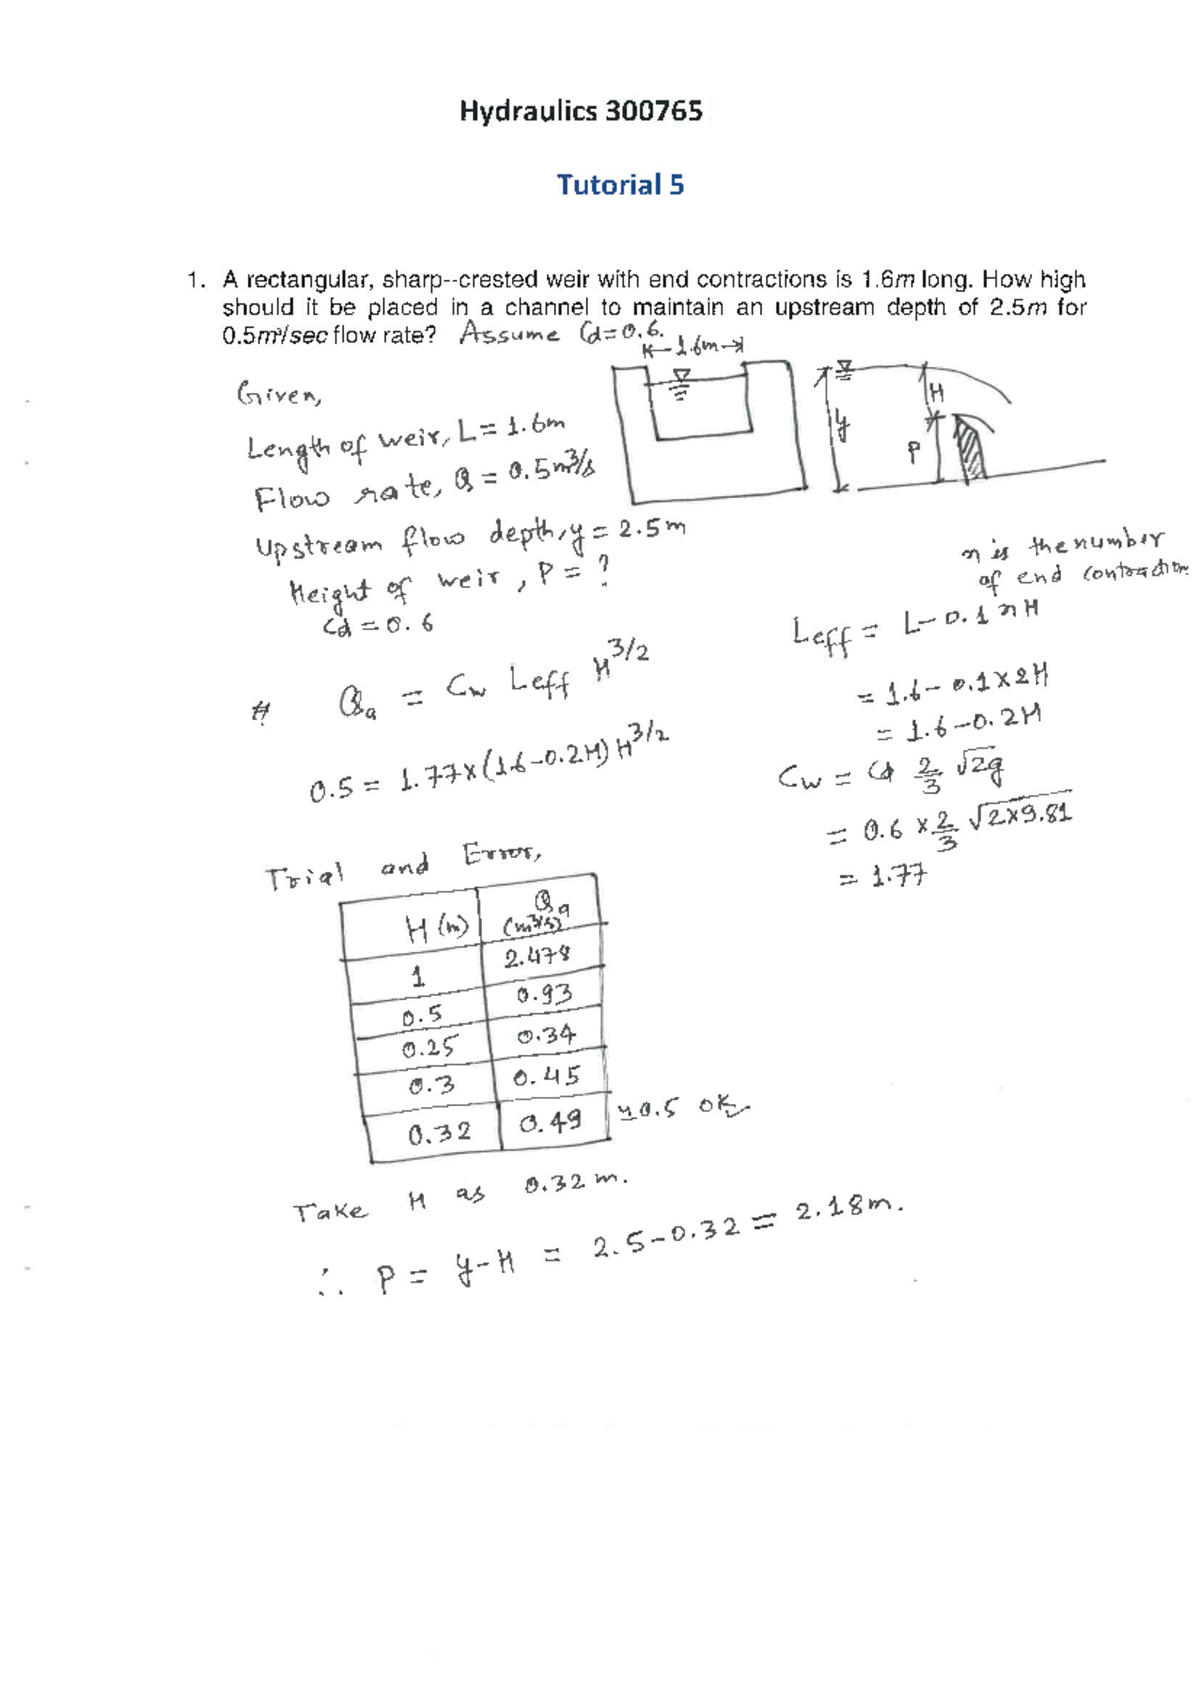 Hydraulics 300765
Tutorial 5
1. A rectangular, sharp--crested weir with end contractions is 1.6m long. How high
should it be placed in a channel to maintain an upstream depth of 2.5m for
0.5m³/sec flow rate? Assume Cd=0.6.
1.6m
Given,
H
y
P
Length of weir, L = 1.6m
Flow rate, Q = 0.5m³/s
Upstream flow depth, y = 2.5m
Height of weir, P = ?
Cd = 0.6
n is the number
of end contraction
Leff = L-0.1nH
= 1.6-0.1×2H
= 1.6-0.2H
Cw = Cd 2/3 √2g
= 0.6 × 2/3 √2×9.81
= 1.77
# Qa = Cw Leff H^3/2
0.5 = 1.77×(1.6-0.2H) H^3/2
Trial and Error,
H (m) Qa (m³/s)
1 2.478
0.5 0.93
0.25 0.34
0.3 0.45
0.32 0.49 ≈0.5 OK
Take H as 0.32 m.
∴ P = y-H = 2.5-0.32 = 2.18m.